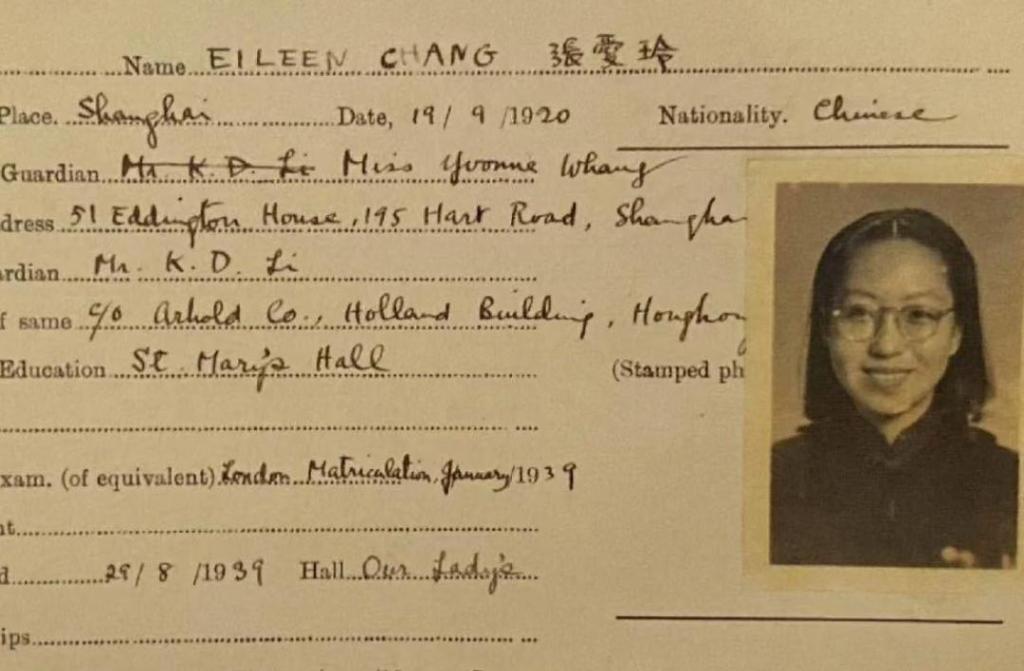 Name EILEEN CHANG 張愛玲
Place. Shanghai Date, 19/ 9 /1920 Nationality. Chinese
Guardian Mr. K. D. Li Miss Yvonne Whang
dress 51 Eddington House, 195 Hart Road, Shangha
rdian Mr. K. D. Li
f same c/o Arhold Co., Holland Building, Hongkon
Education St. Mary's Hall (Stamped ph
xam. (of equivalent) London Matriculation, January/1939
t
d 29/ 8 /1939 Hall Our Lady's
ips